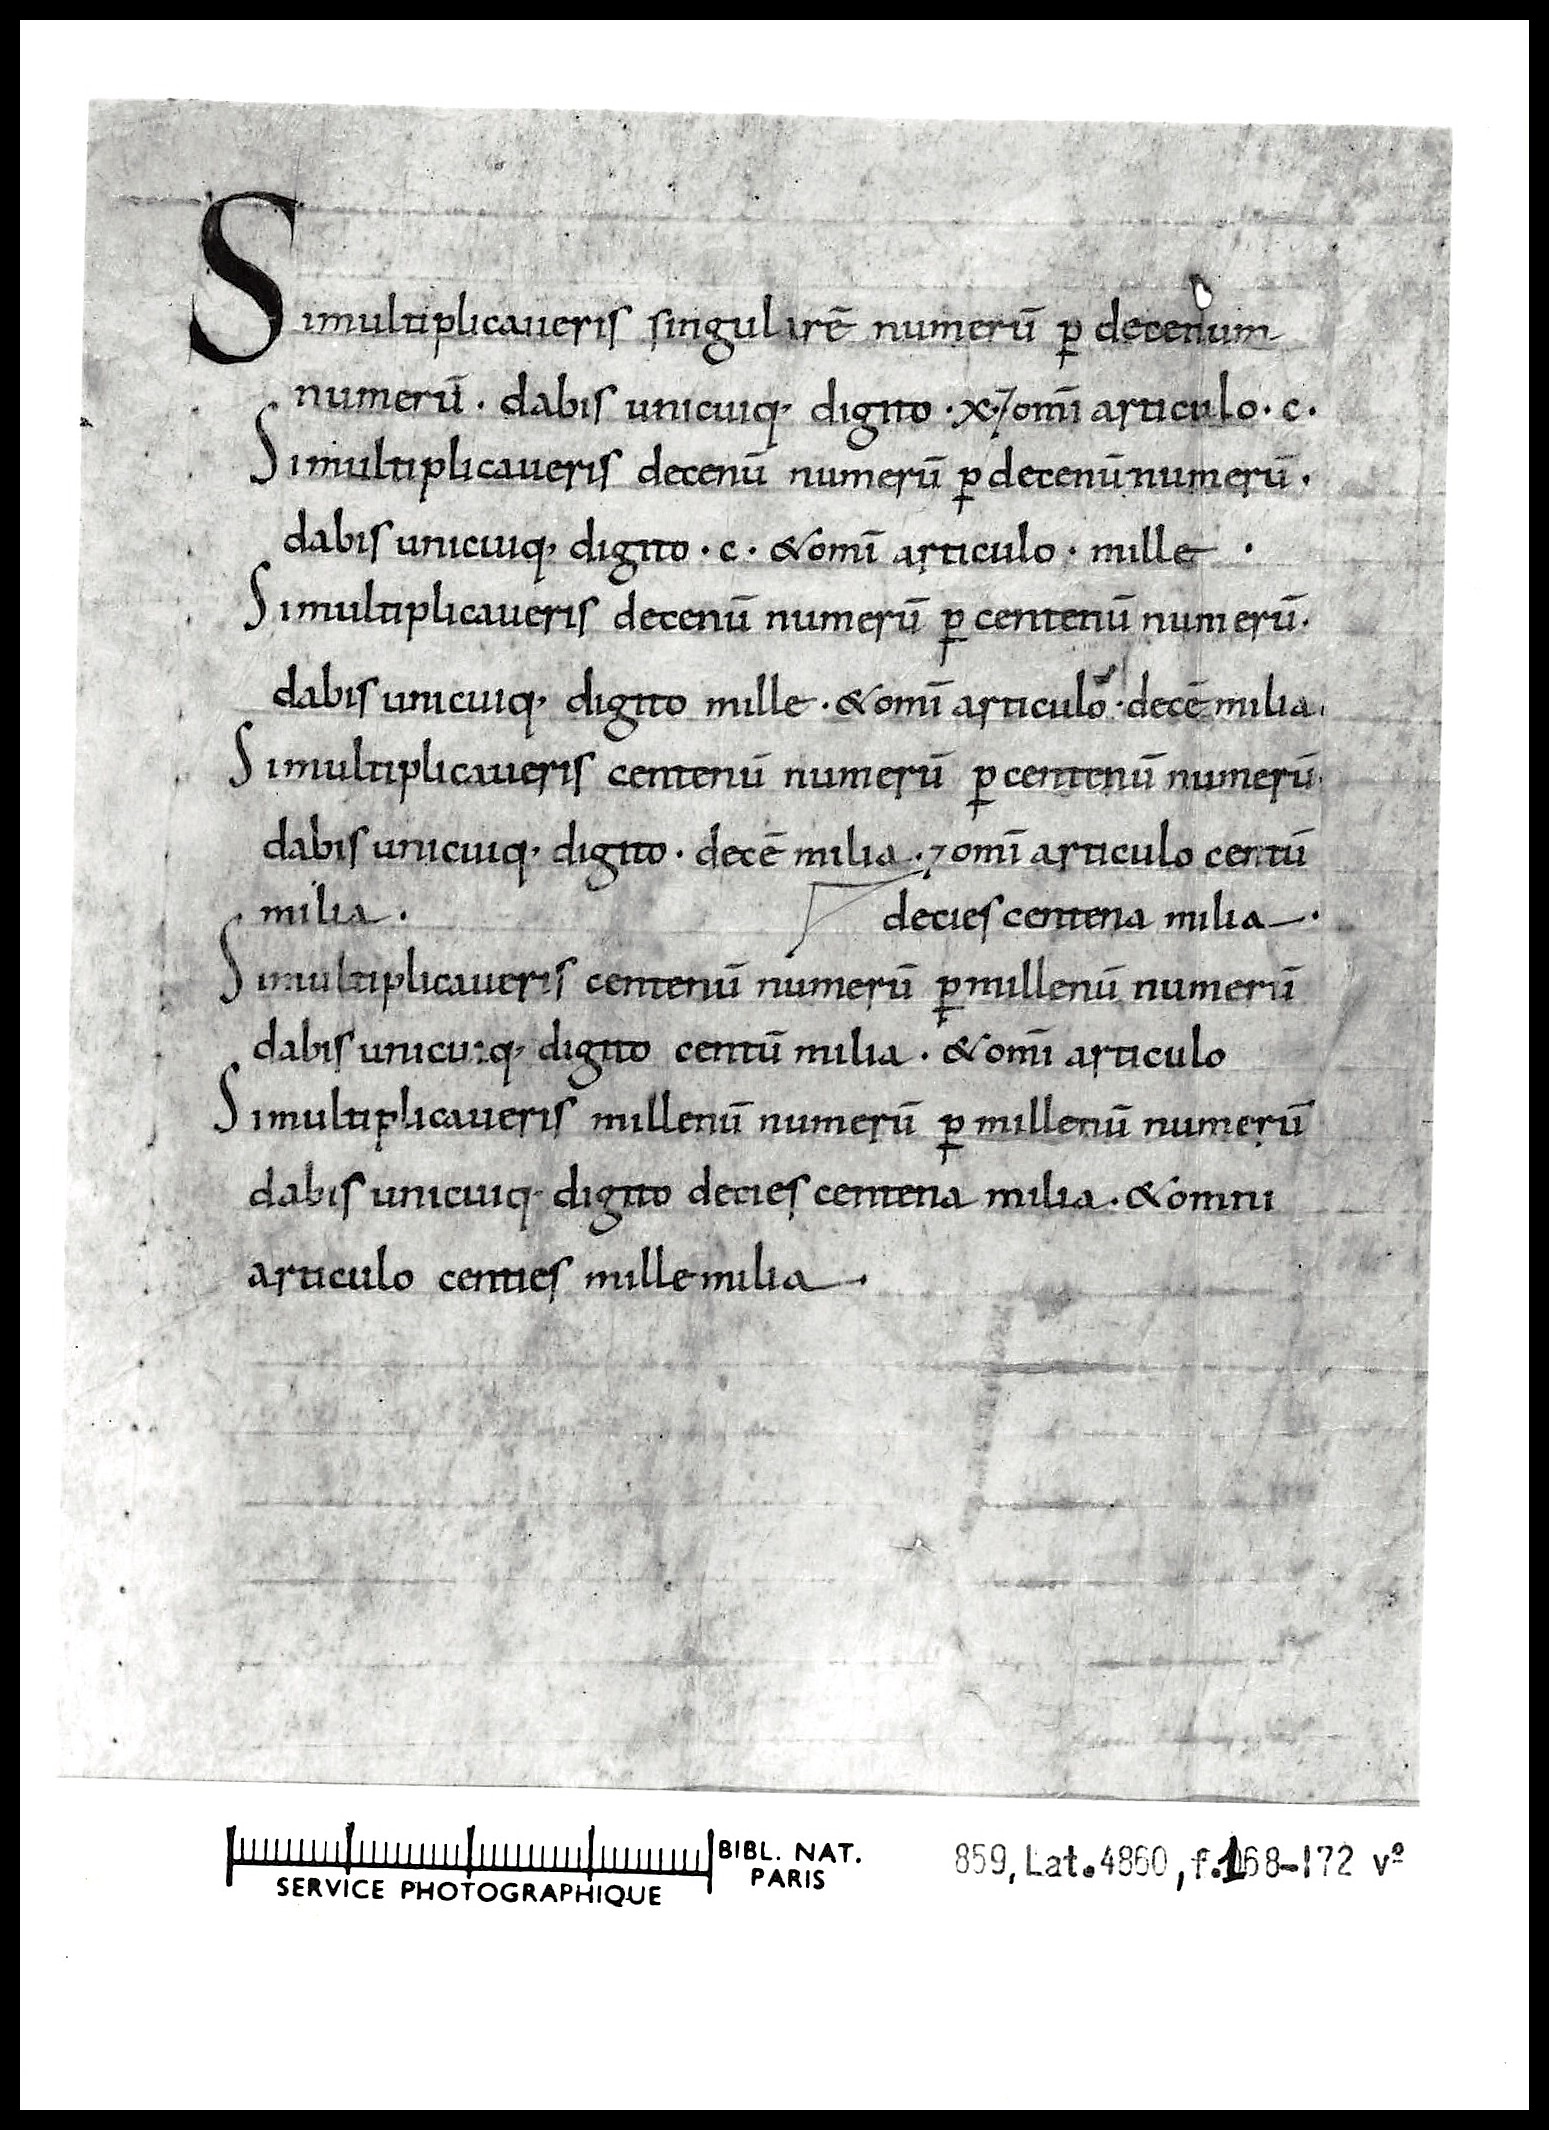 Simultiplicaueris singularē numerū ꝑ decenum
numerū · dabis unicuiq; digito · x · ⁊ omī articulo · c ·
Simultiplicaueris decenū numerū ꝑ decenū numerū ·
dabis unicuiq; digito · c · & omī articulo · mille ·
Simultiplicaueris decenū numerū ꝑ centenū numerū ·
dabis unicuiq; digito mille · & omī articulo · decē milia ·
Simultiplicaueris centenū numerū ꝑ centenū numerū ·
dabis unicuiq; digito · decē milia · ⁊ omī articulo centū
milia · decies centena milia ·
Simultiplicaueris centenū numerū ꝑ millenū numerū
dabis unicuiq; digito centū milia · & omī articulo
Simultiplicaueris millenū numerū ꝑ millenū numerū
dabis unicuiq; digito decies centena milia · & omni
articulo centies mille milia ·
BIBL. NAT.
PARIS
SERVICE PHOTOGRAPHIQUE
859, Lat. 4860, f. 168-172 vº